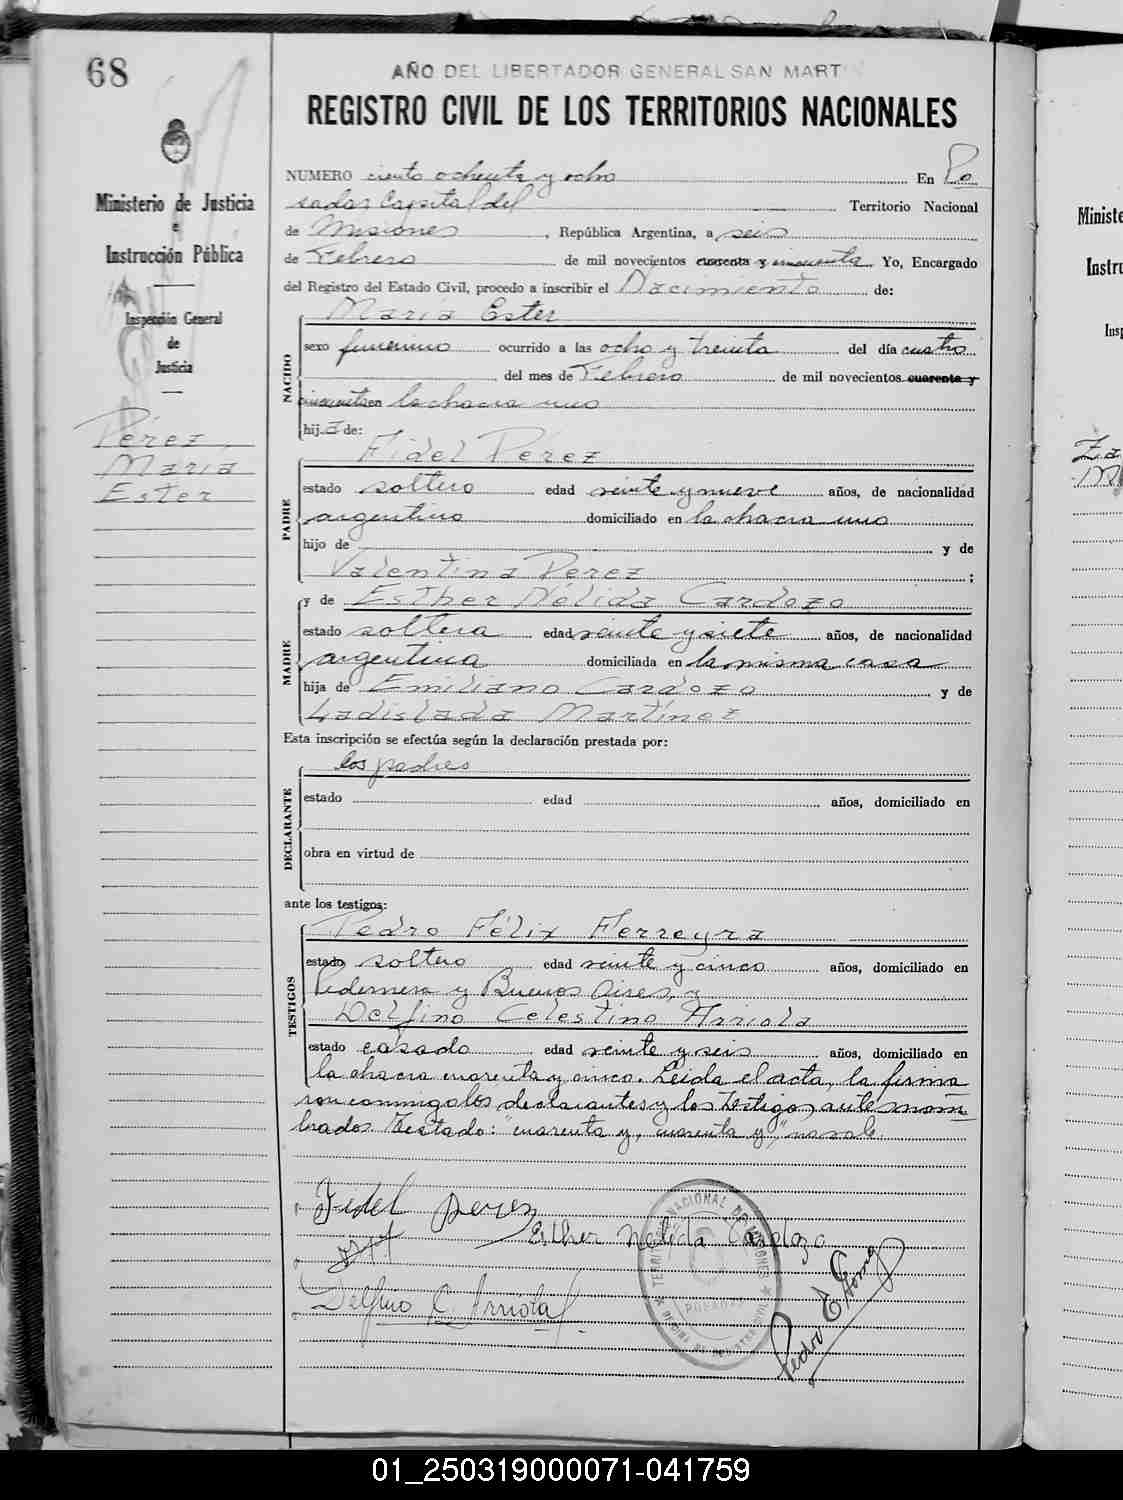 68
AÑO DEL LIBERTADOR GENERAL SAN MARTIN
REGISTRO CIVIL DE LOS TERRITORIOS NACIONALES
Ministerio de Justicia
e
Instrucción Pública
Inspección General
de
Justicia
Pérez,
María
Ester
NUMERO ciento ochenta y ocho En Po
sadas Capital del Territorio Nacional
de Misiones, República Argentina, a seis
de Febrero de mil novecientos cuarenta y cincuenta Yo, Encargado
del Registro del Estado Civil, procedo a inscribir el Nacimiento de:
NACIDO
María Ester
sexo femenino ocurrido a las ocho y treinta del día cuatro
del mes de Febrero de mil novecientos cuarenta y
cincuenta en la chacra uno
hija de:
PADRE
Fidel Pérez
estado soltero edad veinte y nueve años, de nacionalidad
argentino domiciliado en la chacra uno
hijo de y de
Valentina Perez ;
MADRE
y de Esther Nélida Cardozo
estado soltera edad veinte y siete años, de nacionalidad
argentina domiciliada en la misma casa
hija de Emiliano Cardozo y de
Ladislada Martínez
Esta inscripción se efectúa según la declaración prestada por:
DECLARANTE
los padres
estado edad años, domiciliado en
obra en virtud de
ante los testigos:
TESTIGOS
Pedro Félix Ferreyra
estado soltero edad veinte y cinco años, domiciliado en
Pedernera y Buenos Aires, y
Delfino Celestino Arriola
estado casado edad veinte y seis años, domiciliado en
la chacra cuarenta y cinco. Leída el acta, la firma
ron conmigo los declarantes y los testigos ante nom
brados. Testado: "cuarenta y, cuarenta y", no vale.
Fidel Perez
Esther Nelida Cardozo
Delfino C. Arriola
Pedro E. Gomez
TERRITORIO NACIONAL DE MISIONES
POSADAS
Ministe
Instru
Insp
Za
M
01_250319000071-041759